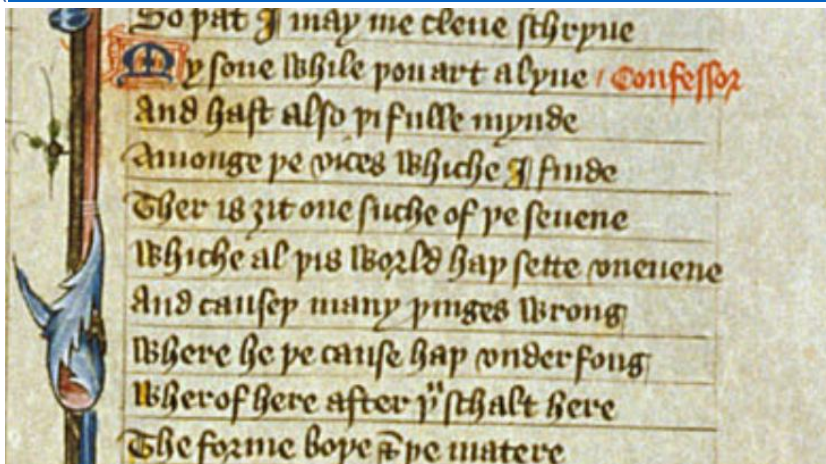 So þat I may me cleue schryue
My sone while þou art alyue / Confessor
And hast also þi fulle mynde
Amonge þe vices whiche I finde
Ther is ȝit one suche of þe seuene
Whiche al þis world haþ sette vneuene
And causeþ many þinges wrong
Where he þe cause haþ vnderfong
Wherof here after þͧ schalt here
The forme boþe & þe matere